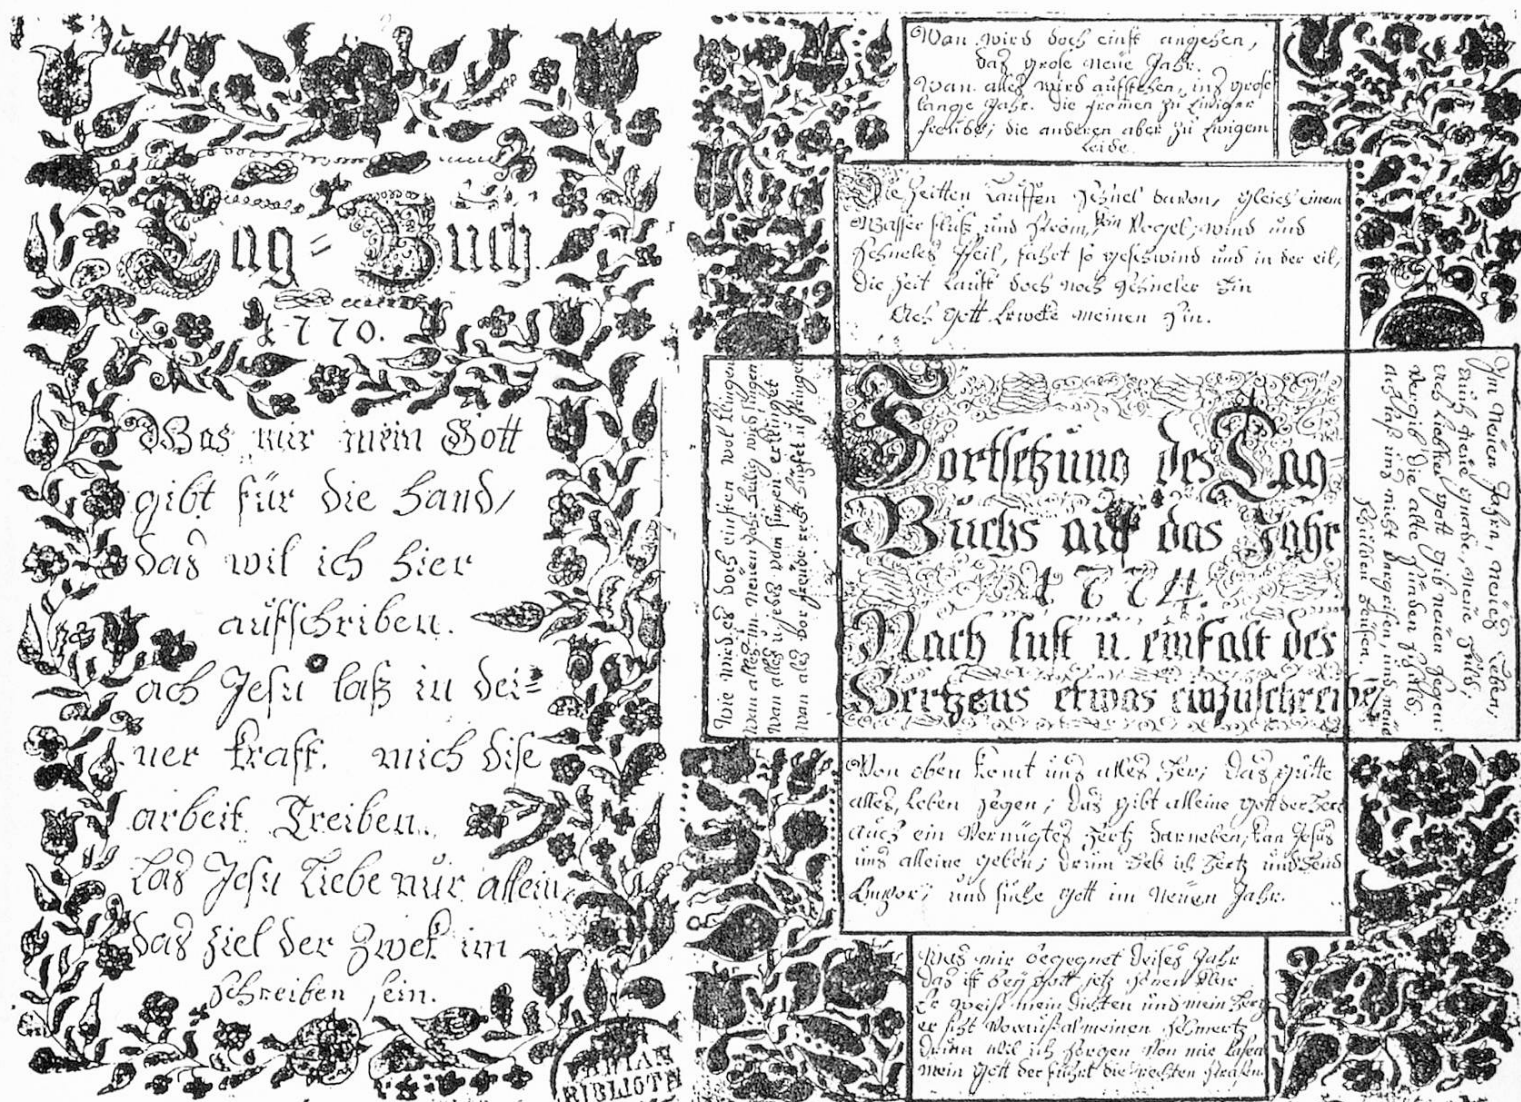 Tag = Buch.
1770.
Was mir mein Gott
gibt für die hand/
das wil ich hier
aufschriben.
ach Jesu laß in dei=
ner kraft. mich dise
arbeit Treiben.
las Jesu Liebe nur allein
das ziel der Zwek im
schreiben sein.
Wan wird doch einst angehen,
das grose neue Jahr.
Wan alles wird aufstehen, ins grose
lange Jahr. die fromen zu Ewiger
freude; die anderen aber zu Ewigem
Leide.
Die Zeitten Lauffen schnel davon, gleich einem
Wasser fluß und strom, Ein Vogel, wind und
schneles Pfeil, fahrt so geschwind und in der eil,
die Zeit lauft doch noch schneler hin
Ach Gott Erweke meinen Sin.
Wie wird es doch einsten wol klingen
wan alles im Neuen Jahr
wan alles u jedes von
wan als vor freude recht hüpfet u springet
Fortsetzung des Tag
Buchs auf das Jahr
1774.
Nach lust u. einfalt des
Hertzens etwas einzuschreiben
Im Neuen Jahre, neues Leben,
auch neue gnade, neue Huld,
Vergib die alte Sünden schuld.
Von oben komt uns alles her; das gutte
alles, leben segen; das gibt alleine Gott der Herr
auch ein Vernügtes hertz darneben, kan Jesus
uns alleine geben; drum heb ich hertz und hend
Empor; und suche Gott im Neuen Jahr.
Was mir begegnet dises Jahr
das ist bey Gott jetz schon klar
Er weiß mein dichten und mein hertz
er siht voraus al meinen schmertz
drum wil ich sorgen von mir lasen
mein Gott der führt die rechten strasen.
BIBLIOT